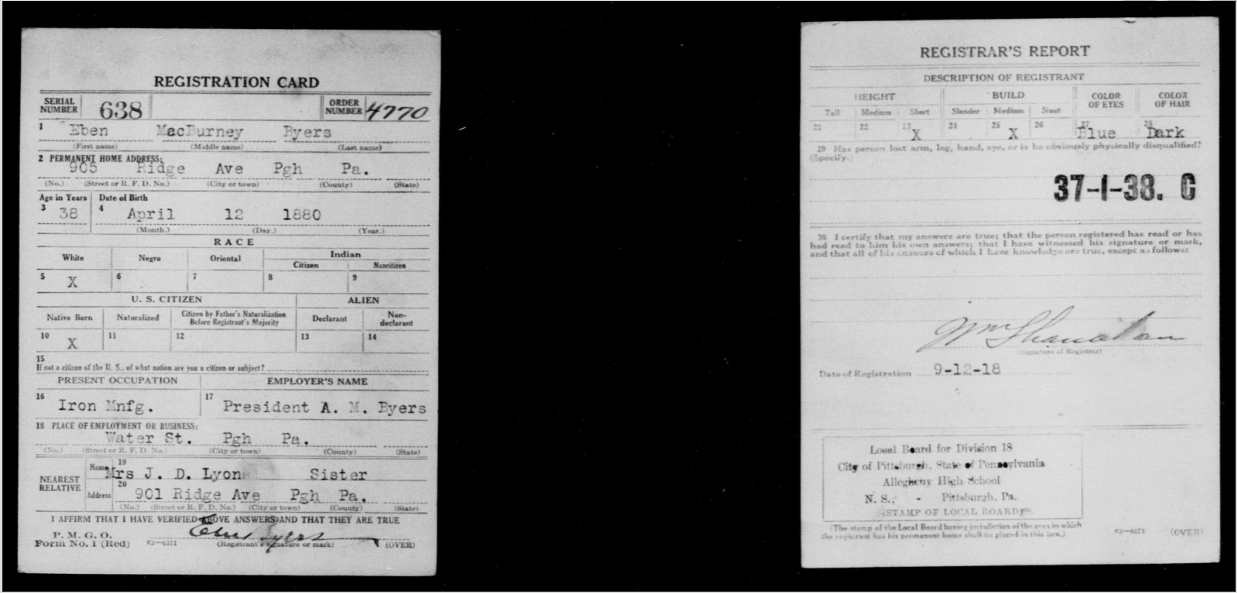 REGISTRATION CARD
SERIAL NUMBER 638 ORDER NUMBER 4770
1 Eben MacBurney Byers
(First name) (Middle name) (Last name)
2 PERMANENT HOME ADDRESS:
905 Ridge Ave Pgh Pa.
(No.) (Street or R. F. D. No.) (City or town) (County) (State)
Age in Years Date of Birth
3 38 4 April 12 1880
(Month.) (Day.) (Year.)
RACE
White Negro Oriental Indian
Citizen Noncitizen
5 X 6 7 8 9
U. S. CITIZEN ALIEN
Native Born Naturalized Citizen by Father's Naturalization Before Registrant's Majority Declarant Non-declarant
10 X 11 12 13 14
15
If not a citizen of the U. S., of what nation are you a citizen or subject?
PRESENT OCCUPATION EMPLOYER'S NAME
16 Iron Mnfg. 17 President A. M. Byers
18 PLACE OF EMPLOYMENT OR BUSINESS:
Water St. Pgh Pa.
(No.) (Street or R. F. D. No.) (City or town) (County) (State)
NEAREST RELATIVE
Name 19 Mrs J. D. Lyon Sister
Address 20 901 Ridge Ave Pgh Pa.
(No.) (Street or R. F. D. No.) (City or town) (County) (State)
I AFFIRM THAT I HAVE VERIFIED ABOVE ANSWERS AND THAT THEY ARE TRUE
P. M. G. O.
Form No. 1 (Red) Eben Byers
(Registrant's signature or mark) (OVER)
REGISTRAR'S REPORT
DESCRIPTION OF REGISTRANT
HEIGHT BUILD COLOR OF EYES COLOR OF HAIR
Tall Medium Short Slender Medium Stout
21 22 23 X 24 25 X 26 27 Blue 28 Dark
29 Has person lost arm, leg, hand, eye, or is he obviously physically disqualified?
(Specify.)
37-1-38. C
30 I certify that my answers are true; that the person registered has read or has
had read to him his own answers; that I have witnessed his signature or mark,
and that all of his answers of which I have knowledge are true, except as follows:
Wm Shanahan
(Signature of Registrar)
Date of Registration 9-12-18
Local Board for Division 18
City of Pittsburgh, State of Pennsylvania
Allegheny High School
N. S., - Pittsburgh, Pa.
(STAMP OF LOCAL BOARD)
(The stamp of the Local Board having jurisdiction of the area in which
the registrant has his permanent home shall be placed in this box.)
(OVER)